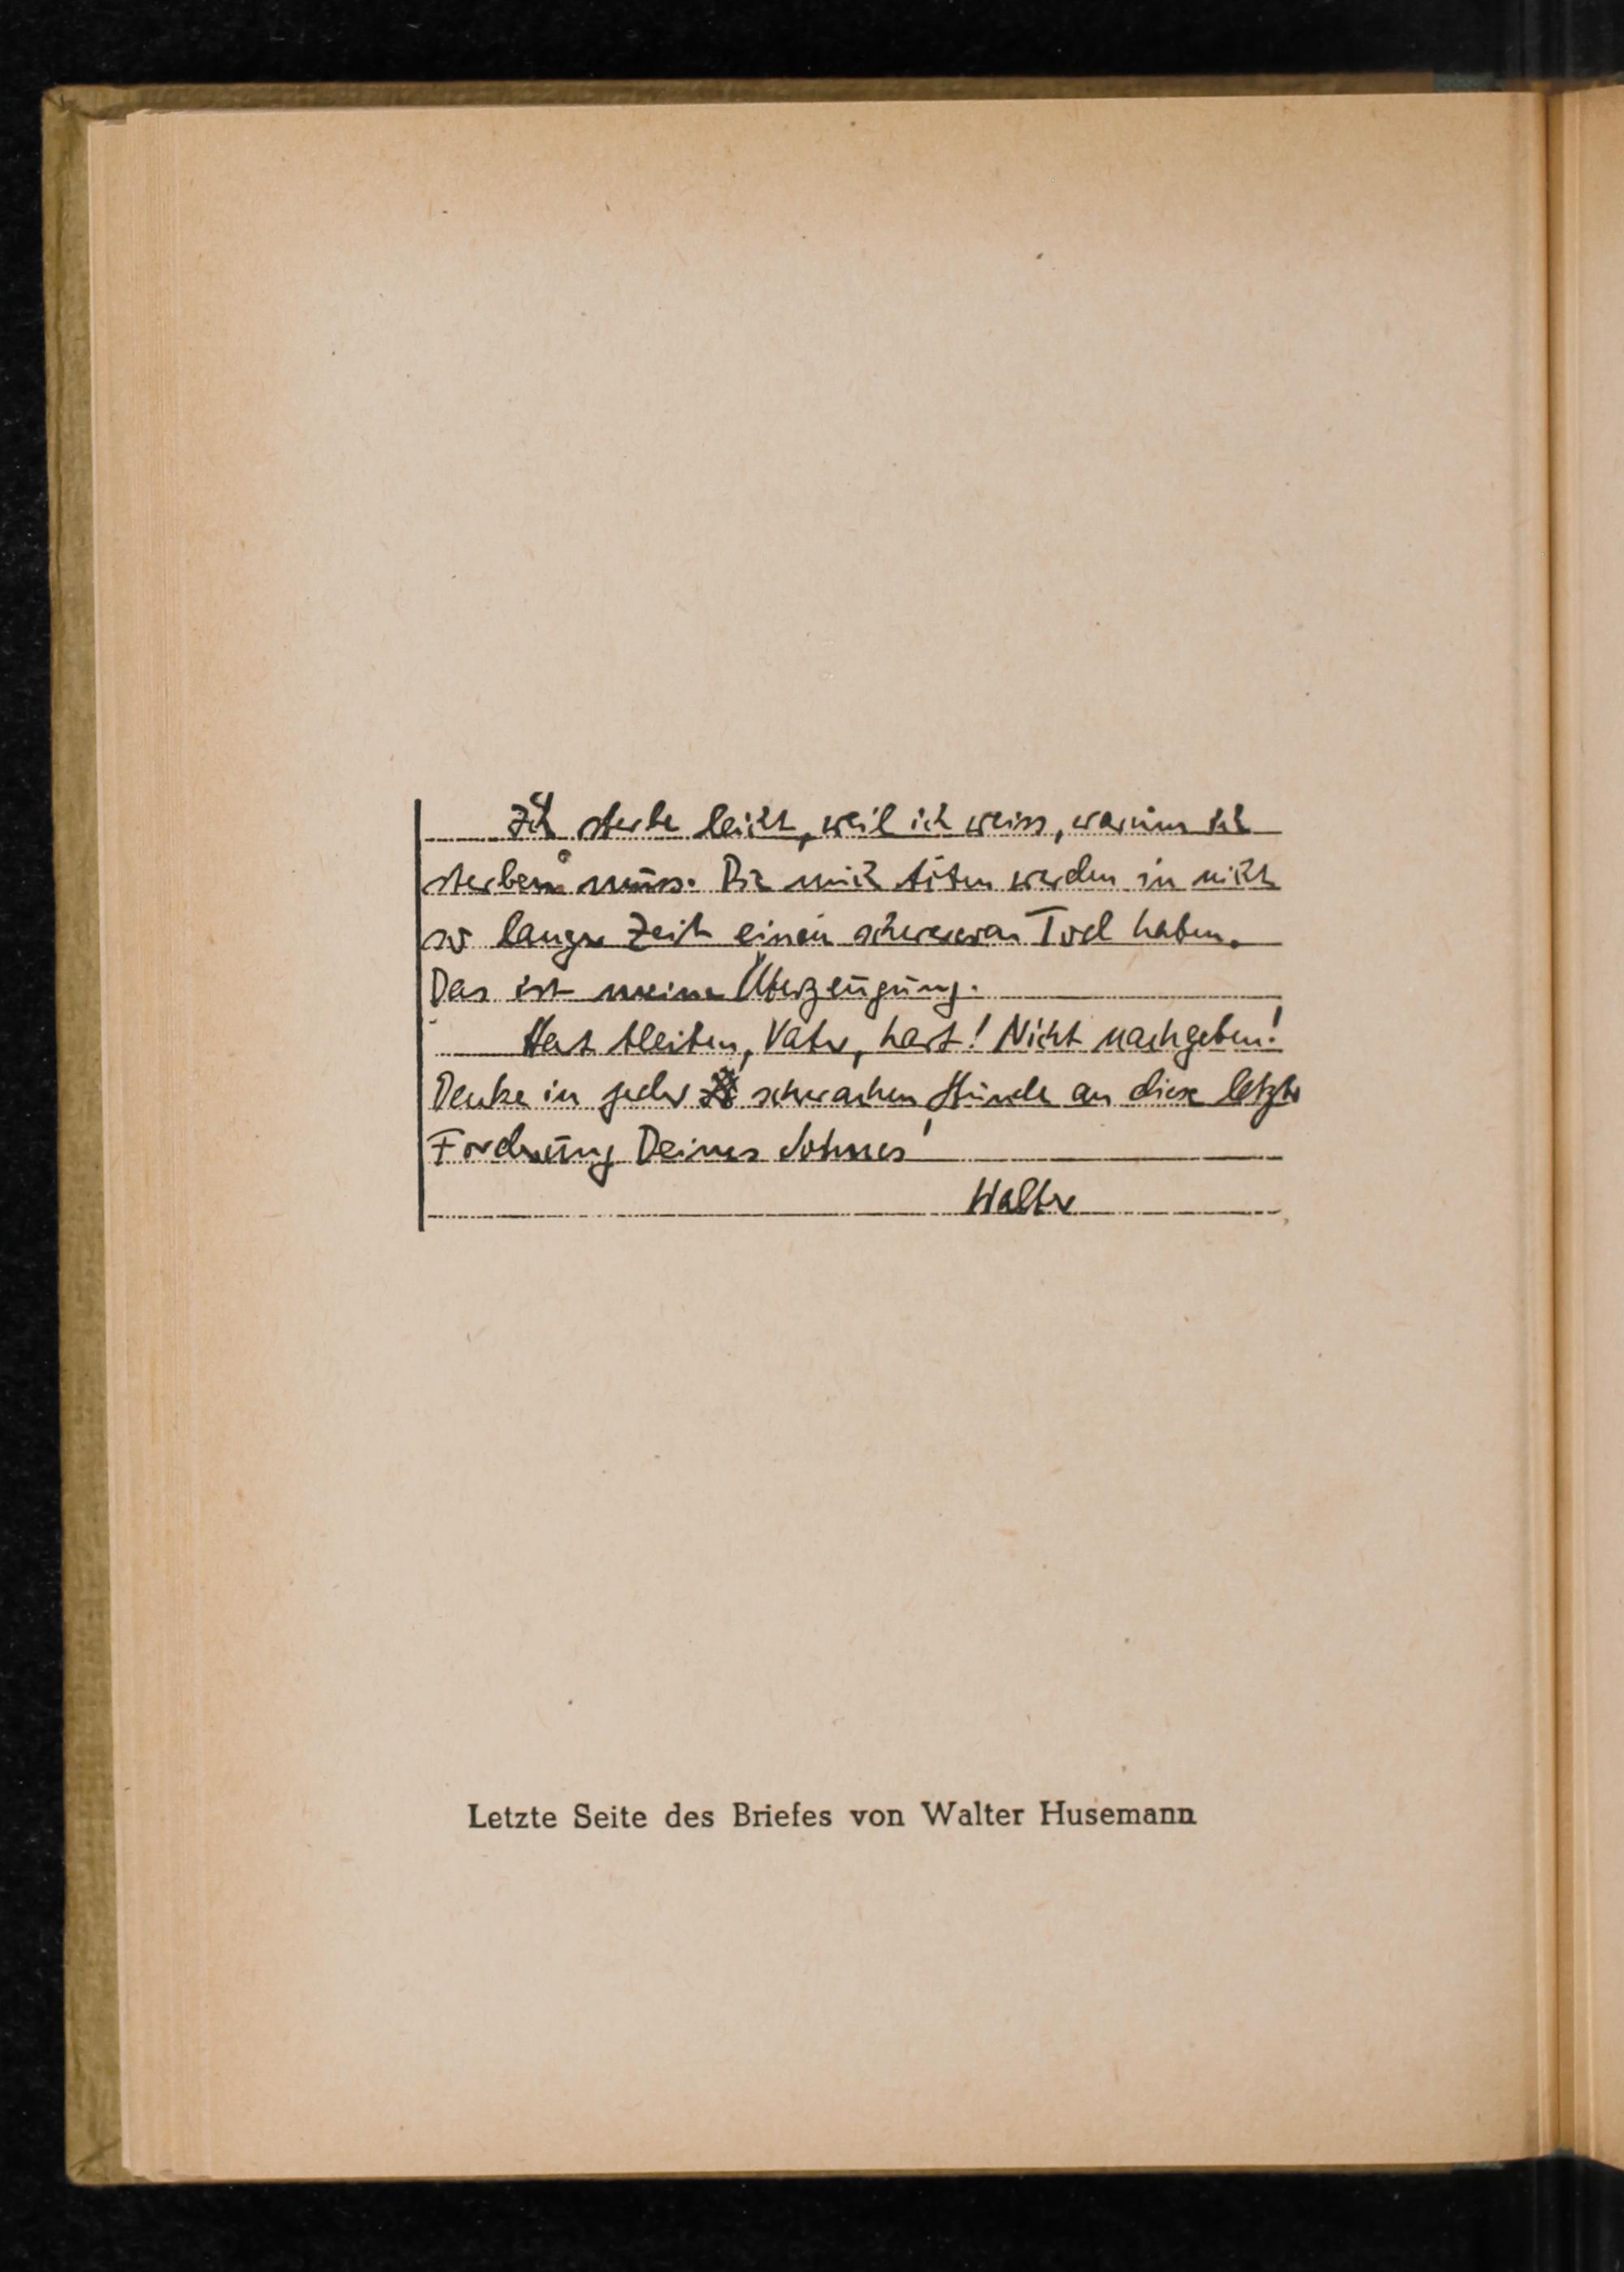 Ich sterbe leicht, weil ich weiss, warum ich
sterben muss. Die mich töten werden in nicht
so langer Zeit einen schweren Tod haben.
Das ist meine Überzeugung.
Hart bleiben, Vater, hart! Nicht nachgeben!
Denke in jeder schwachen Stunde an diese letzte
Forderung Deines Sohnes
Walter
Letzte Seite des Briefes von Walter Husemann